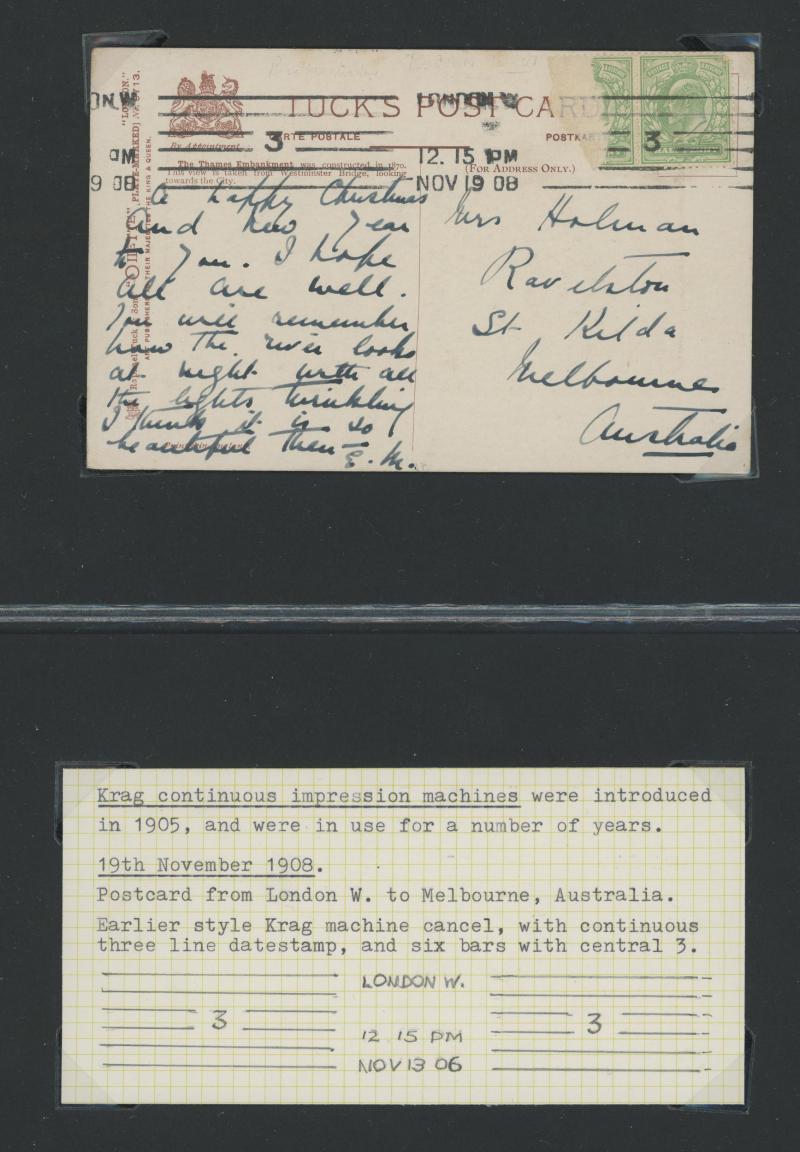 LONDON.W
TUCK'S POST CARD
CARTE POSTALE
POSTKARTE
3
3
By Appointment
12. 15 PM
NOV 19 08
(FOR ADDRESS ONLY.)
The Thames Embankment was constructed in 1870.
This view is taken from Westminster Bridge, looking
towards the City.
ON.W
PM
9 08
"LONDON."
Raphael Tuck & Sons' "OILETTE"
A happy Christmas
and New Year
to you. I hope
all are well.
You will remember
how the river looks
at night with all
the lights twinkling
I think it is so
beautiful then —
E. M.
Mrs Holman
Ravelston
St Kilda
Melbourne
Australia
Krag continuous impression machines were introduced
in 1905, and were in use for a number of years.
19th November 1908.
Postcard from London W. to Melbourne, Australia.
Earlier style Krag machine cancel, with continuous
three line datestamp, and six bars with central 3.
LONDON W.
3
3
12 15 PM
NOV 13 06